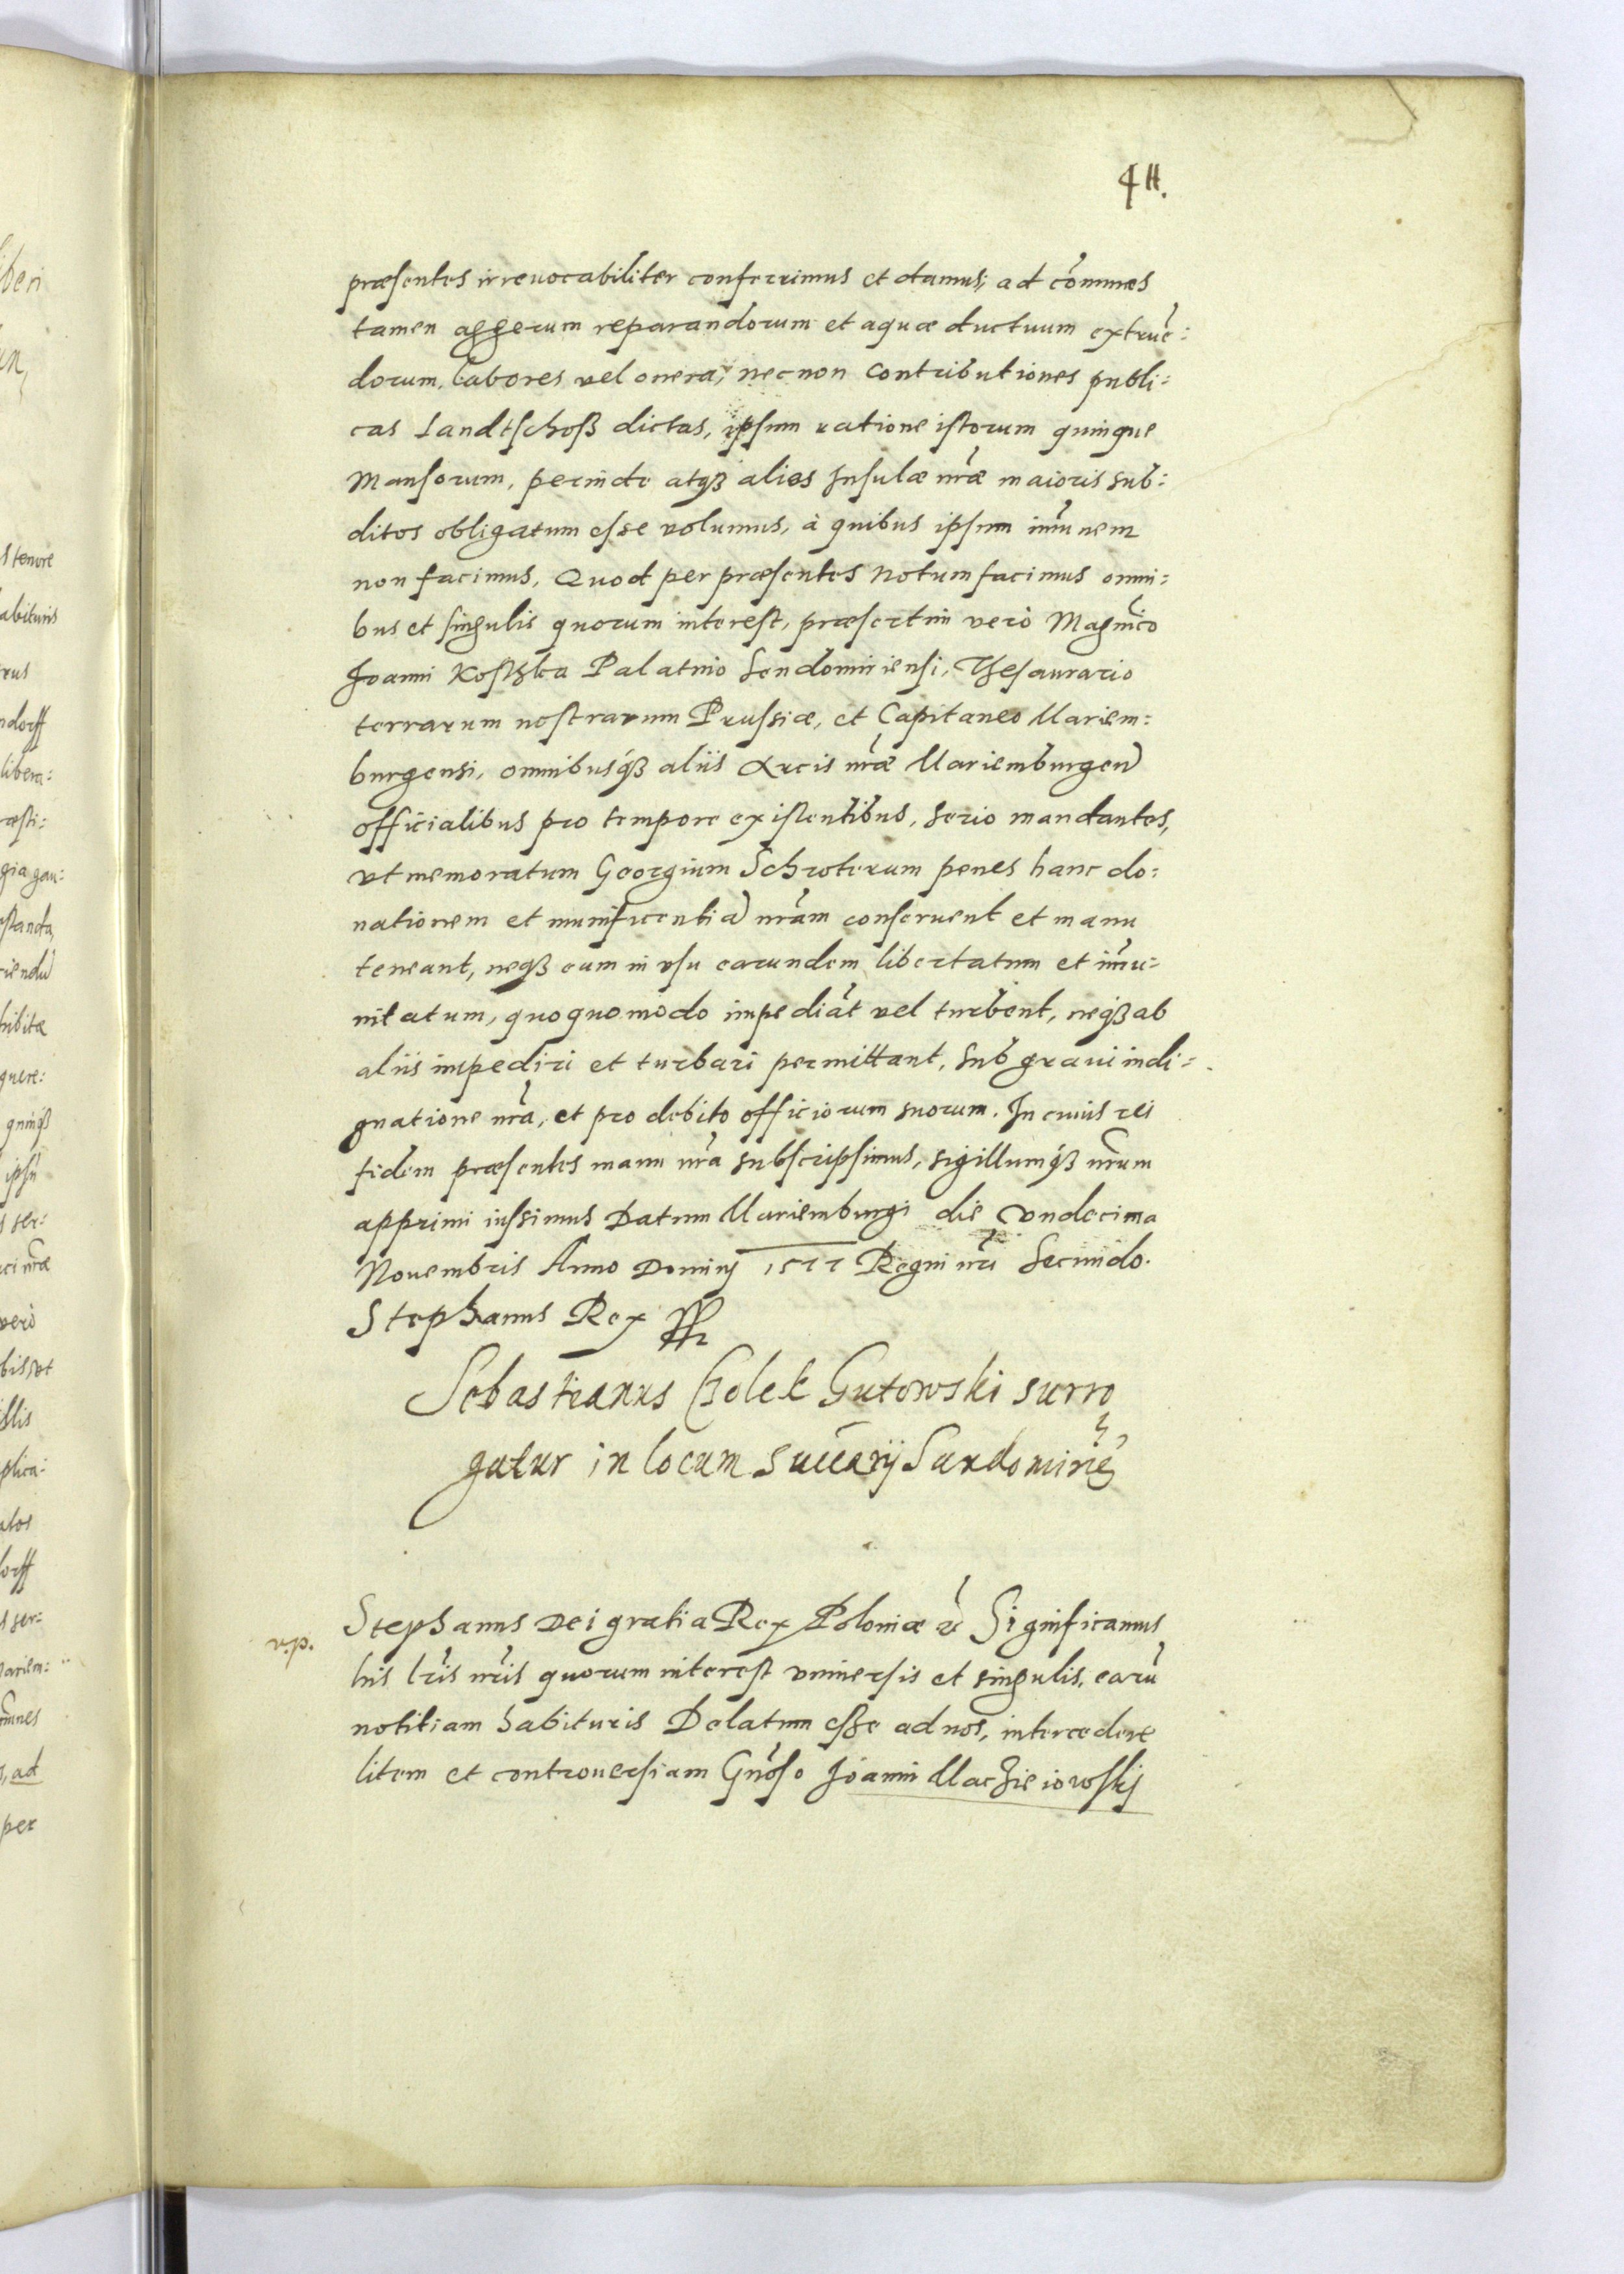 411.
præsentes irreuocabiliter conferrimus et damus, ad cõmunes
tamen aggerum reparandorum et aquæ ductuum extruẽ:
dorum, labores vel onera, necnon contributiones publi:
cas Landtschoß dictas, ipsum ratione istorum quinque
Mansorum, perinde atqꝫ alios Insulæ nr̃æ maioris sub:
ditos obligatum esse volumus, à quibus ipsum im̃unem
non facimus, Quod per præsentes notum facimus omni:
bus et singulis quorum interest, præsertim verò Magnico
Joanni Kosthka Palatino Sendomiriensi, Thesaurario
terrarum nostrarum Prussiæ, et Capitaneo Mariem:
burgensi, omnibusqꝫ aliis Arcis nr̃æ Mariemburgen̄
officialibus pro tempore existentibus, serio mandantes,
vt memoratum Georgium Schroterum penes hanc do:
nationem et munificentiã nr̃am conseruent et manu
teneant, neqꝫ eum in vsu earundem libertatum et im̃u:
nitatum, quoquomodo impediãt vel turbent, neqꝫ ab
aliis impediri et turbari permittant, sub graui indi:
gnatione nr̃a, et pro debito officiorum suorum. In cuius rei
fidem præsentes manu nr̃a subscripsimus, sigillumqꝫ nr̃um
apprimi iussimus Datum Mariemburgi die vndecima
Nouembris Anno Dominj 1577 Regni nr̃i Secundo.
Stephanus Rex
Sebastianus Czolek Gutowski surro
gatur in locum succarij Sandomirie
v.p.
Stephanus Dei gratia Rex Poloniæ &c̃ Significamus
his lr̃is nr̃is quorum interest vniuersis et singulis, earũ
notitiam habituris Delatum esse ad nos, intercedere
litem et controuersiam Gnõso Joanni Maczieiowskij